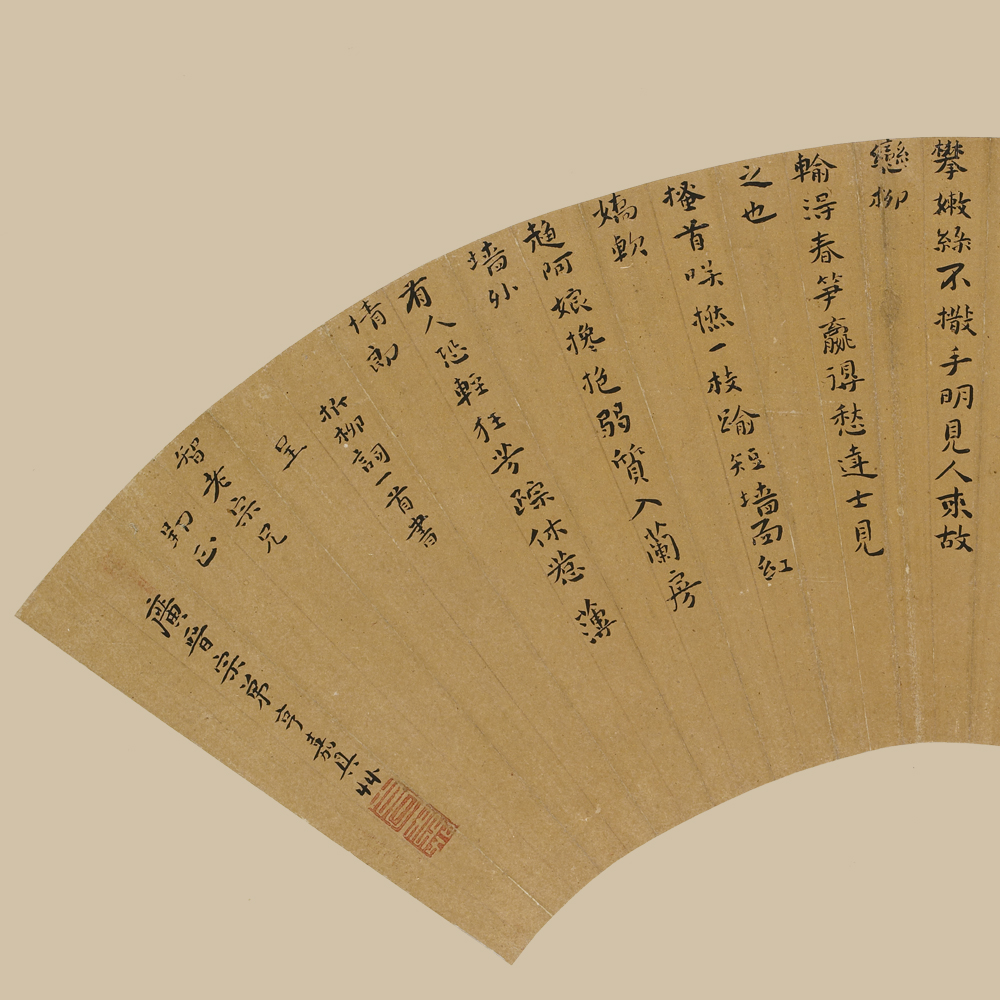 攀嫩絲不撒手明見人來故
戀柳
輸得春爭贏得愁達士見
之也
搔首咲撚一枝踰短墻面紅
嬌軟
趂阿娘攙抱弱質入蘭房
墻外
有人恐輕狂芳踪休惹薄
情郎
折柳詞一首書
呈
智老宗兄
勑正
廣晉宗弟亨嘉具艸